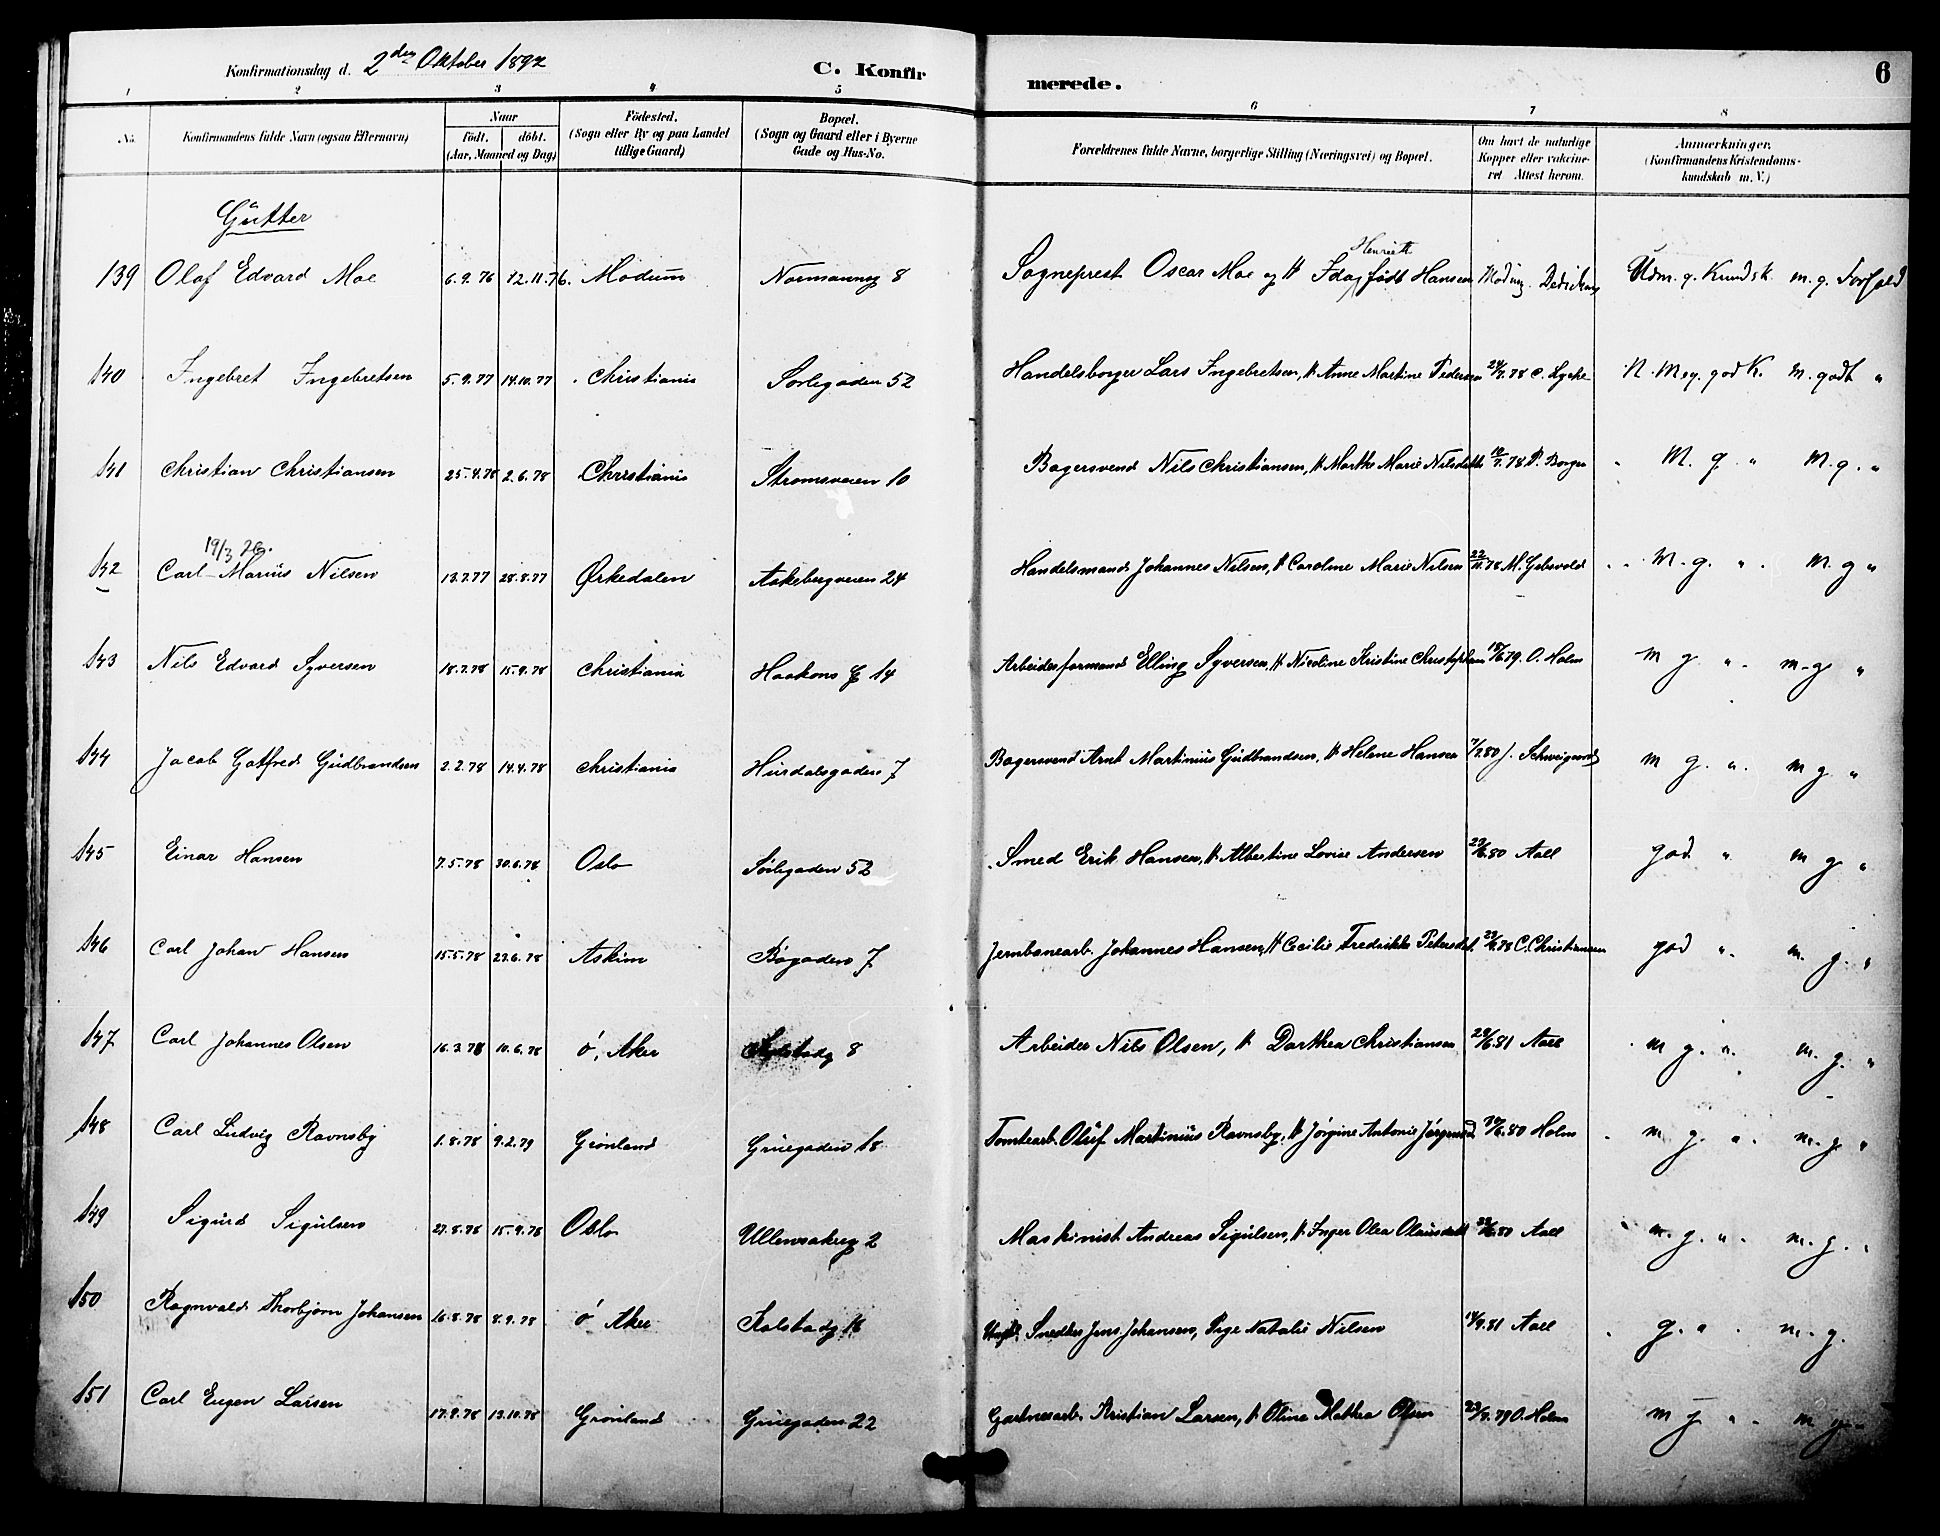 Konfirmationsdag d. 2den Oktober 1892 C. Konfirmerede. 6
1 2 3 4 5 6 7 8
No. Konfirmandens fulde Navn (ogsaa Efternavn) Naar födt. döbt. (Aar, Maaned og Dag) Födested. (Sogn eller By og paa Landet tillige Gaard) Bopæl. (Sogn og Gaard eller i Byerne Gade og Hus-No. Forældrenes fulde Navne, borgerlige Stilling (Næringsvei) og Bopæl. Om havt de naturlige Kopper eller vakcineret Attest herom. Anmærkninger. (Konfirmandens Kristendomskundskab m. V.)
Gutter
139 Olaf Edvard Moe 6.9.76 12.11.76. Modum Normannsg 8 Sogneprest Oscar Moe og H Ida Henriette født Hansen Udm. g. Kundsk. m. g. Forhold
140 Ingebret Ingebretsen 5.9.77 14.10.77 Christiania Sorligaden 52 Handelsborger Lars Ingebretsen, H Anne Martine Pedersen N. Meg. god K. M. godt "
141 Christian Christiansen 25.4.78 2.6.78 Christiania Strømsveien 10 Bagersvend Nils Christiansen, H Marthe Marie Nilsdatter M. g. " M. g. "
142 Carl Marius Nilsen 19/3 26. 13.7.77 28.8.77 Ørkedalen Aakebergveien 24 Handelsmand Johannes Nilsen, H Caroline Marie Nilsen 22/11.78 M. g. " M. g "
143 Nils Edvard Syversen 18.7.78 15.9.78 Christiania Haakons g 14 Arbeidsformand Elling Syversen, H Nicoline Kristine O. Holm m g. " m. g "
144 Jacob Gotfred Gudbrandsen 2.2.78 14.4.78 Christiania Hurdalsgaden 7 Bagersvend Arnt Martinius Gudbrandsen, H Helene Hansen m g. " m g "
145 Einar Hansen 7.5.78 30.6.78 Oslo Sørligaden 52 Smed Erik Hansen, H Albertine Lovise Andersen Aall god " m g "
146 Carl Johan Hansen 15.5.78 23.6.78 Askim Bøgaden 7 Jernbanearb. Johannes Hansen, H Cecilie Fredrikke C. Christiansen god " m. g. "
147 Carl Johannes Olsen 16.3.78 10.6.78 Ø. Aker 8 Arbeider Nils Olsen, H Dorthea Christiansen Aall m g. " m. g. "
148 Carl Ludvig Ravnsby 1.8.78 9.2.79 Grønland Gruegaden 18 Tomtearb. Oluf Martinius Ravnsby, H Jørgine Antonie Holm m. g. " m. g "
149 Sigurd Sigulsen 27.8.78 15.9.78 Oslo Ullensakerg 2 Maskinist Andreas Sigulsen, H Inger Olea Aall m. g. " m. g. "
150 Ragnvald Thorbjørn Johansen 16.8.78 8.9.78 Ø Aker Kolstadg 16 Snedker Jens Johansen, Pige Natalie Nilsen Aall g. " m. g.
151 Carl Eugen Larsen 17.9.78 13.10.78 Grønland Gruegaden 22 Gartnerarb. Kristian Larsen, H Oline Mathea Olsen O. Holm m g " m g "